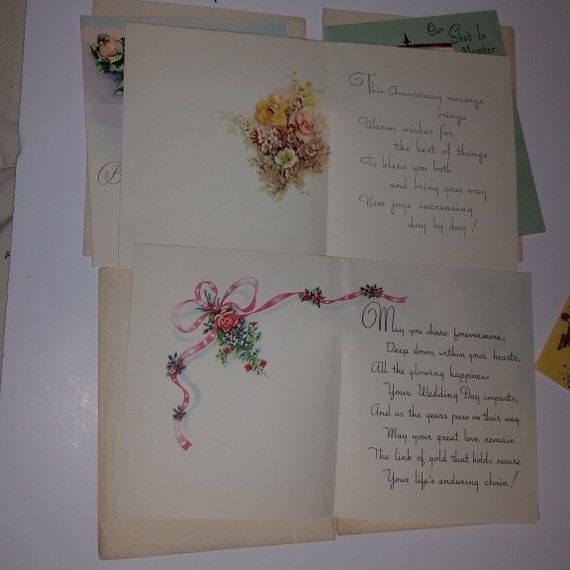 Our
Shut-In
Member
This Anniversary message
brings
Warm wishes for
the best of things
To bless you both
and bring your way
New joys increasing
day by day!
May you share forevermore,
Deep down within your hearts,
All the glowing happiness
Your Wedding Day imparts,
And as the years pass on their way
May your great love remain
The link of gold that holds secure
Your life's enduring chain!